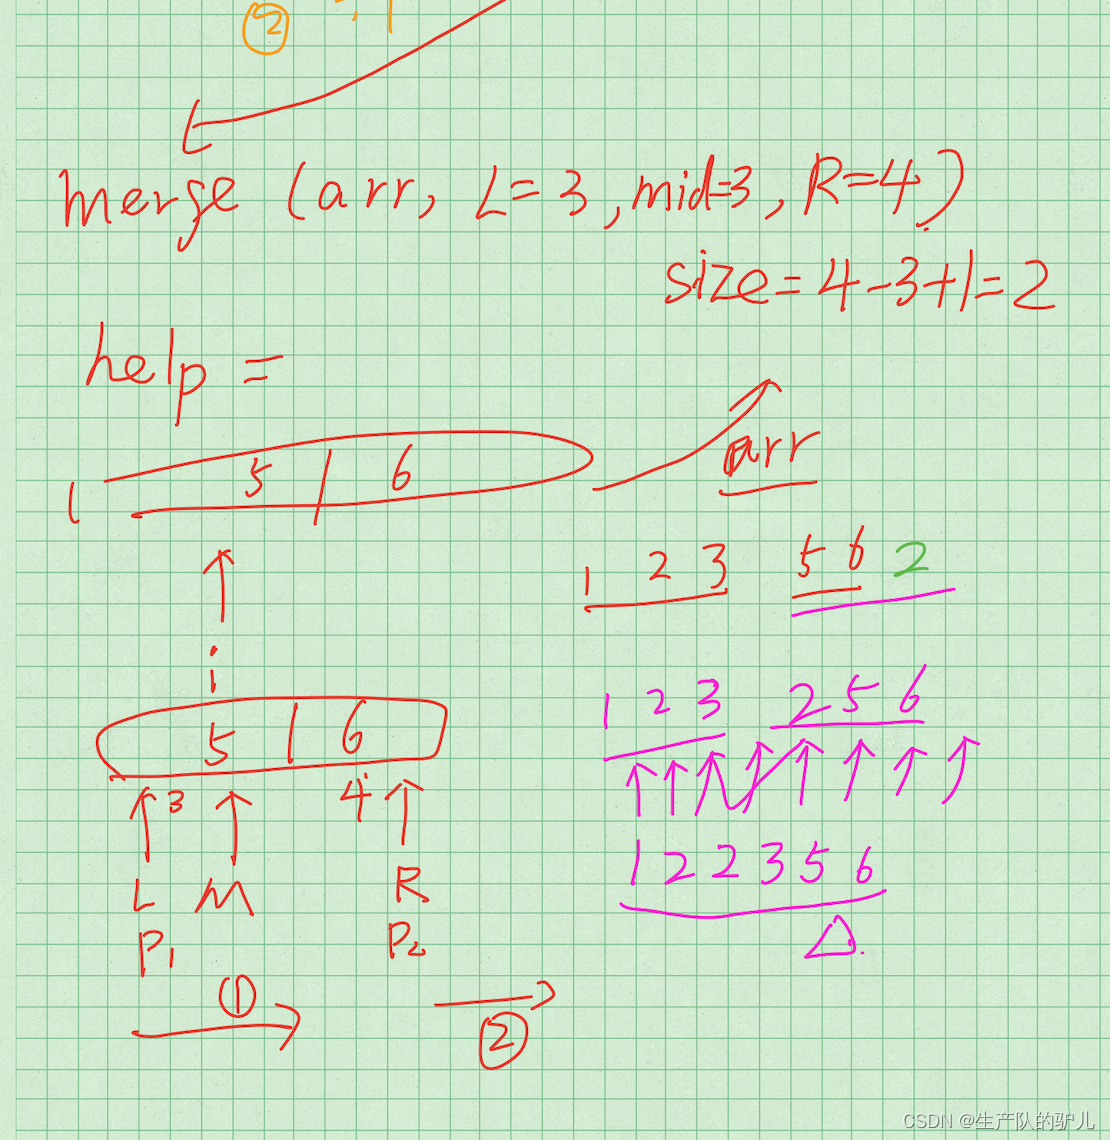 ②
merge (arr, L=3, mid=3, R=4)
size=4-3+1=2
help =
5 | 6
arr
1 2 3 5 6 2
i
1 2 3 2 5 6
5 | 6
3 4
1 2 2 3 5 6
L M R
P1 P2
△
① ②
CSDN @生产队的驴儿